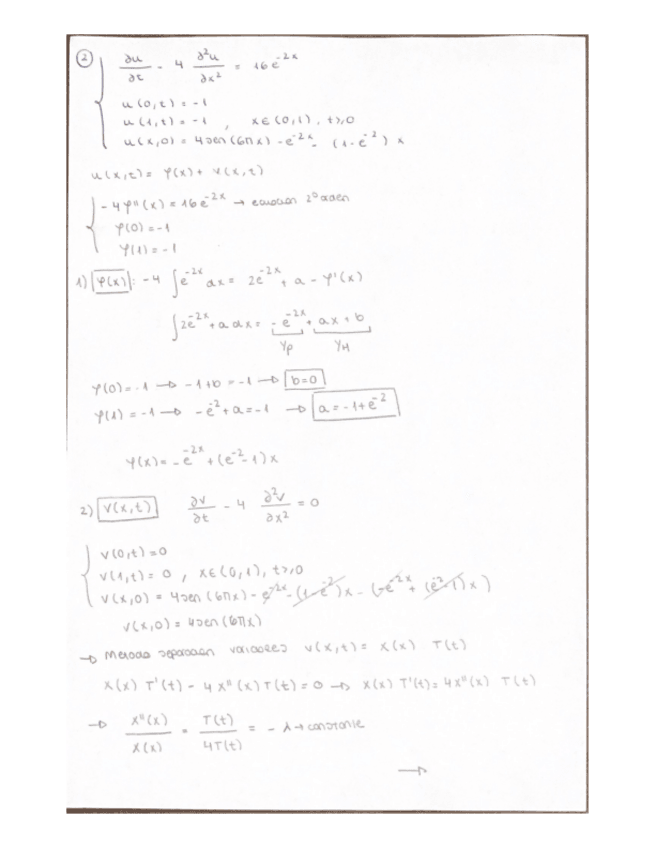 ② ∂u/∂t - 4 ∂²u/∂x² = 16e^-2x
u(0,t) = -1
u(1,t) = -1 , x∈(0,1), t>0
u(x,0) = 4sen(6πx) - e^-2x - (1-e^-2) x
u(x,t) = φ(x) + v(x,t)
-4φ''(x) = 16e^-2x → ecuacion 2º orden
φ(0) = -1
φ(1) = -1
1) φ(x): -4 ∫e^-2x dx = 2e^-2x + a - φ'(x)
∫2e^-2x + a dx = -e^-2x + ax + b
Yp YH
φ(0) = -1 → -1+b = -1 → b=0
φ(1) = -1 → -e^-2 + a = -1 → a = -1+e^-2
φ(x) = -e^-2x + (e^-2 - 1) x
2) v(x,t) ∂v/∂t - 4 ∂²v/∂x² = 0
v(0,t) = 0
v(1,t) = 0 , x∈(0,1), t>0
v(x,0) = 4sen(6πx) - e^-2x - (1-e^-2)x - (-e^-2x + (e^-2-1)x)
v(x,0) = 4sen(6πx)
→ Metodo separacion variables v(x,t) = X(x) T(t)
X(x) T'(t) - 4X''(x)T(t) = 0 → X(x) T'(t) = 4X''(x) T(t)
→ X''(x)/X(x) = T(t)/4T(t) = -λ → constante
→